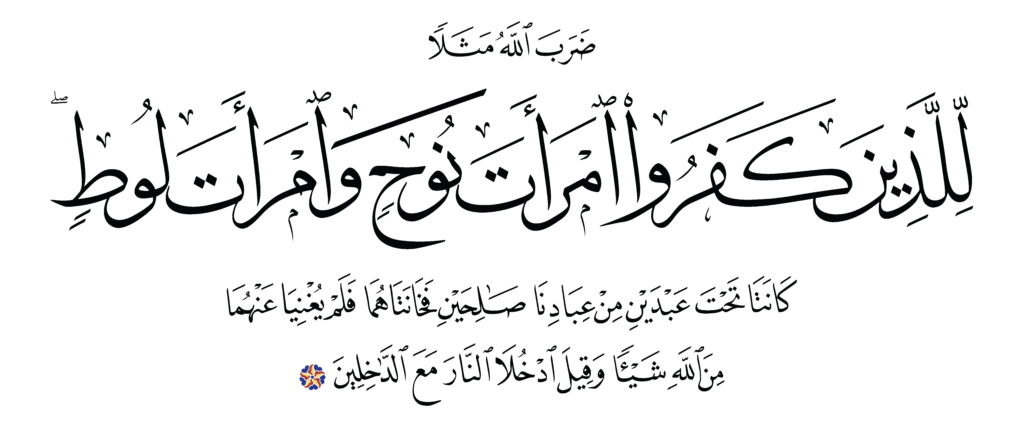 ضَرَبَ ٱللَّهُ مَثَلًا
لِّلَّذِينَ كَفَرُوا۟ ٱمْرَأَتَ نُوحٍ وَٱمْرَأَتَ لُوطٍ ۖ
كَانَتَا تَحْتَ عَبْدَيْنِ مِنْ عِبَادِنَا صَـٰلِحَيْنِ فَخَانَتَاهُمَا فَلَمْ يُغْنِيَا عَنْهُمَا
مِنَ ٱللَّهِ شَيْـًٔا وَقِيلَ ٱدْخُلَا ٱلنَّارَ مَعَ ٱلدَّٰخِلِينَ